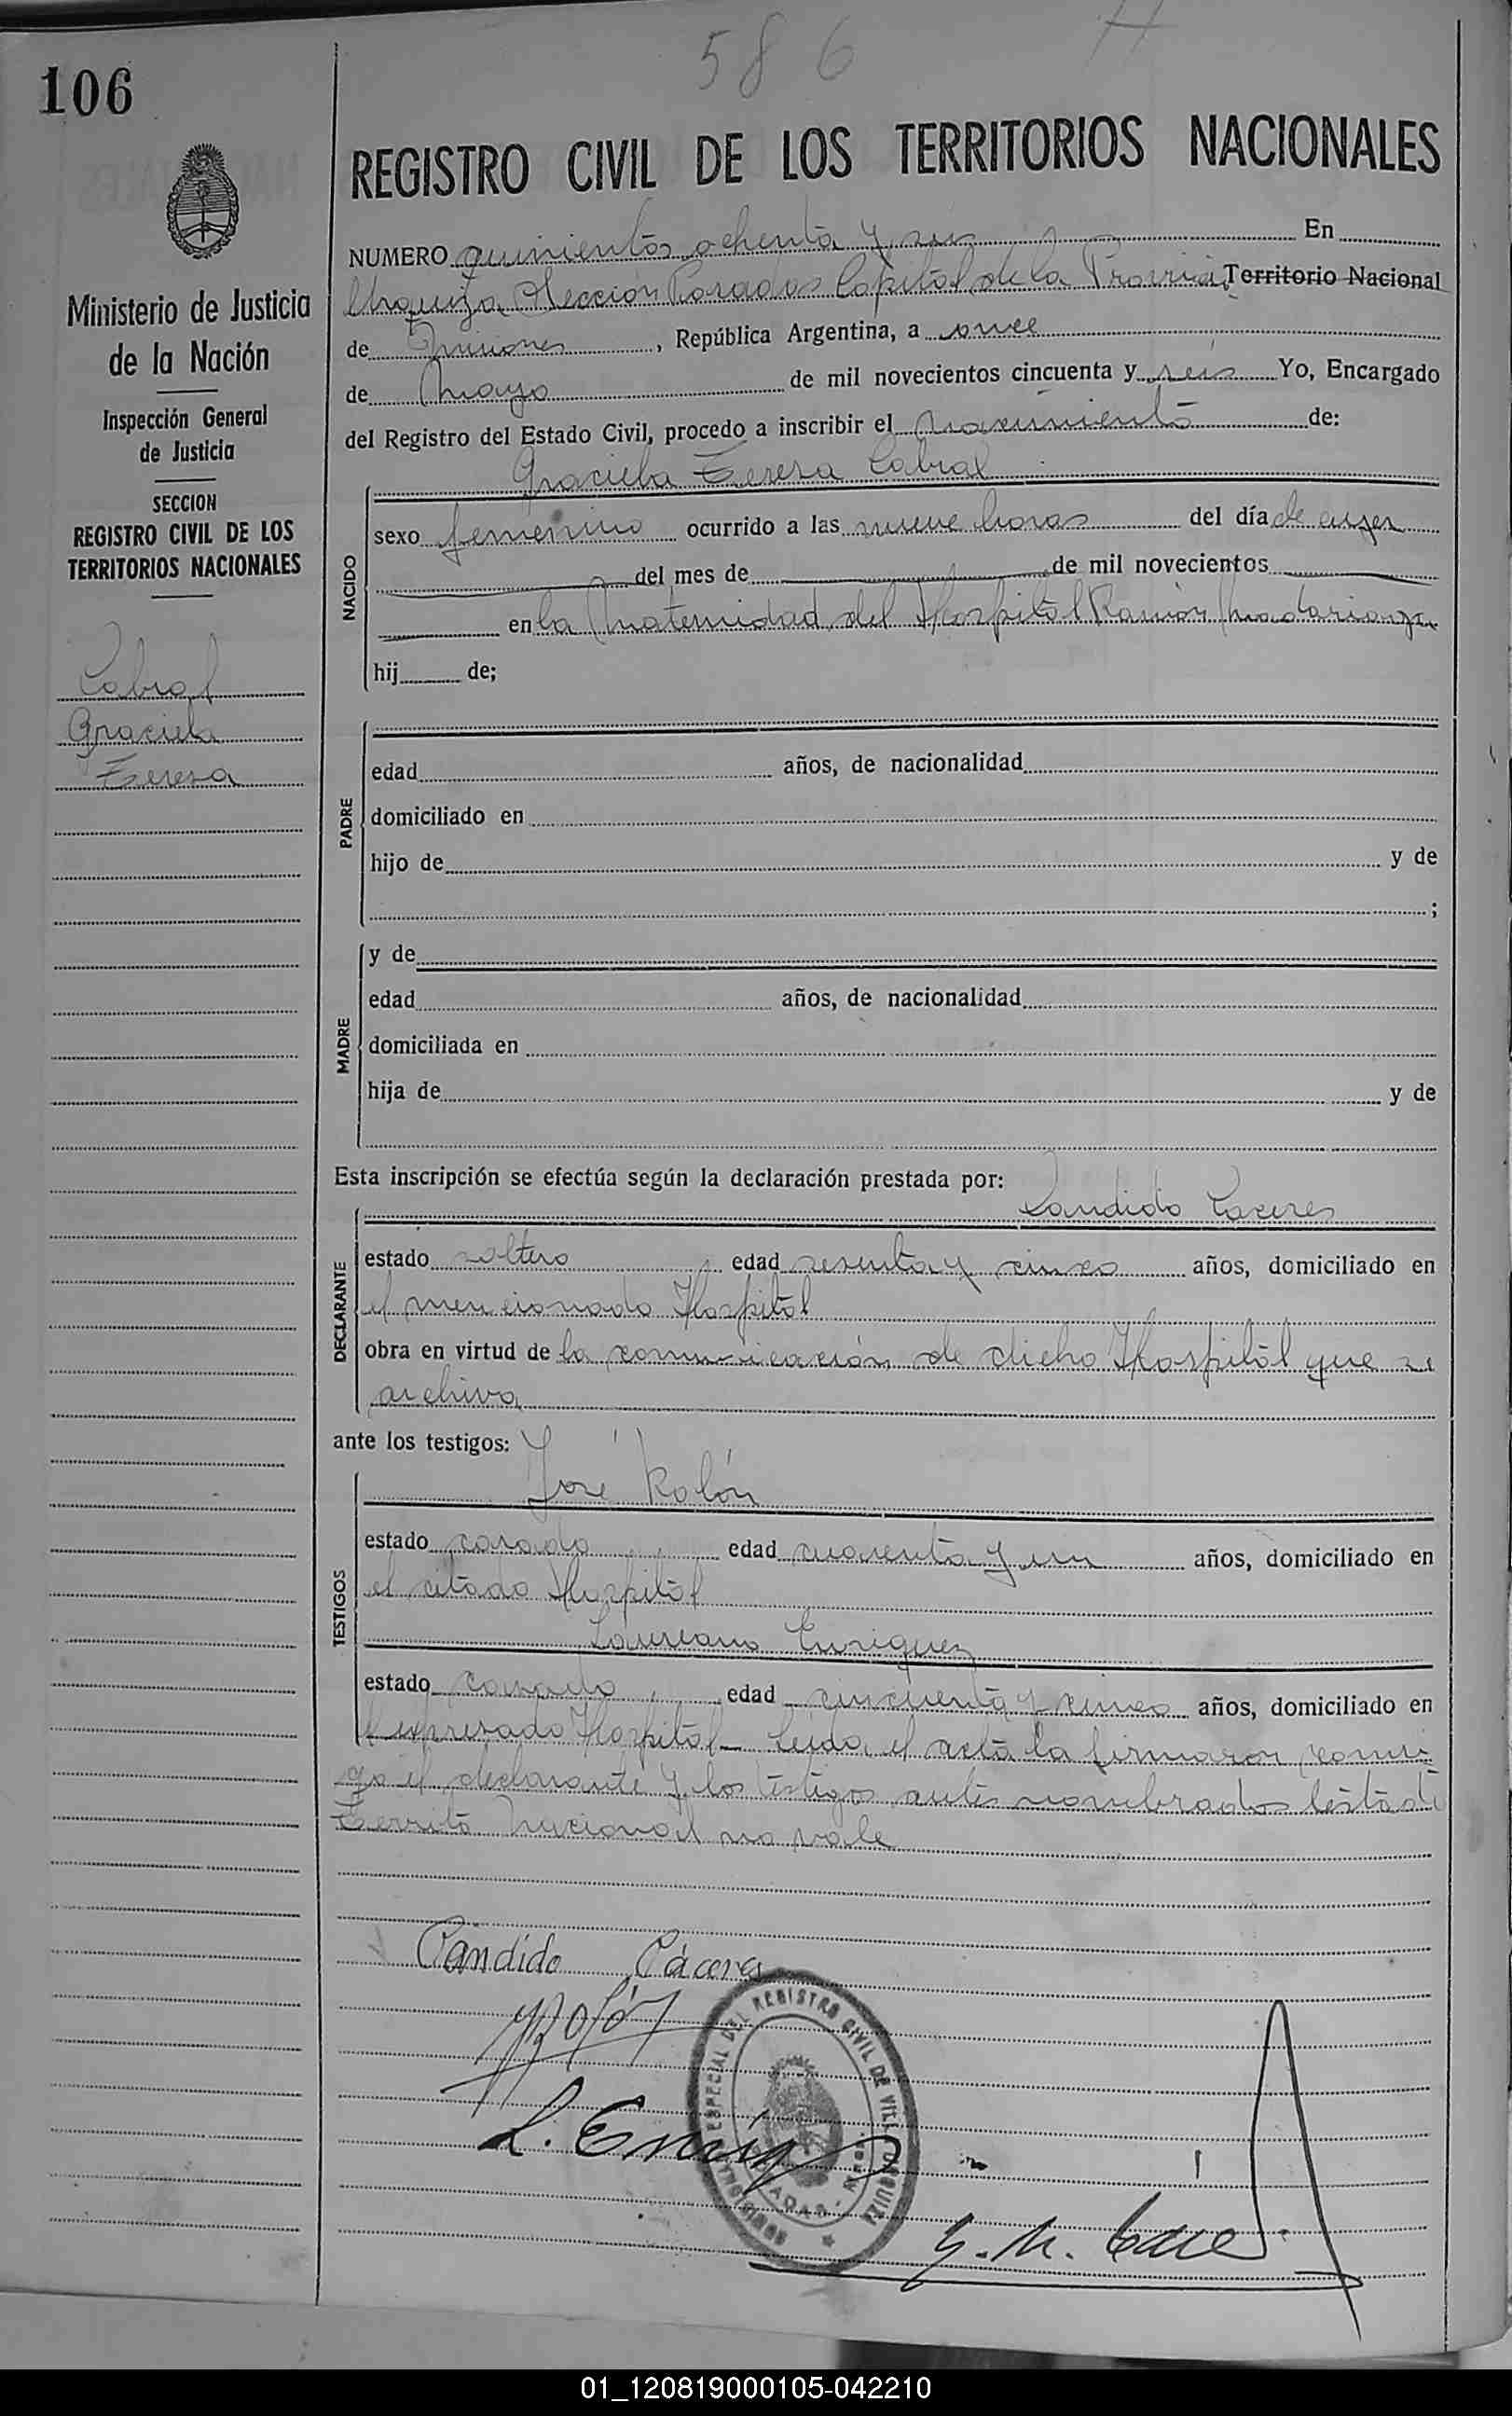 586
106
REGISTRO CIVIL DE LOS TERRITORIOS NACIONALES
Ministerio de Justicia
de la Nación
Inspección General
de Justicia
SECCION
REGISTRO CIVIL DE LOS
TERRITORIOS NACIONALES
Cabral
Graciela
Teresa
NUMERO quinientos ochenta y seis En
Urquiza Sección Posadas Capital de la Provincia Territorio Nacional
de Misiones, República Argentina, a once
de Mayo de mil novecientos cincuenta y seis Yo, Encargado
del Registro del Estado Civil, procedo a inscribir el nacimiento de:
Graciela Teresa Cabral
NACIDO
sexo femenino ocurrido a las nueve horas del día de ayer
del mes de de mil novecientos
en la Maternidad del Hospital Ramón Madariaga
hij de;
PADRE
edad años, de nacionalidad
domiciliado en
hijo de y de
;
MADRE
y de
edad años, de nacionalidad
domiciliada en
hija de y de
Esta inscripción se efectúa según la declaración prestada por:
Candido Caceres
DECLARANTE
estado soltero edad sesenta y cinco años, domiciliado en
el mencionado Hospital
obra en virtud de la comunicación de dicho Hospital que se
archiva
ante los testigos:
José Rolón
TESTIGOS
estado casado edad cuarenta y un años, domiciliado en
el citado Hospital
Laureano Enriquez
estado casado edad cincuenta y cinco años, domiciliado en
el expresado Hospital - Leida el acta la firmaron conmi
go el declarante y los testigos antes nombrados Testado
Territo Nacional no vale
Candido Cáceres
JRolón
L. Enríq
ESPECIAL DEL REGISTRO CIVIL DE VILLA URQUIZA
01_120819000105-042210